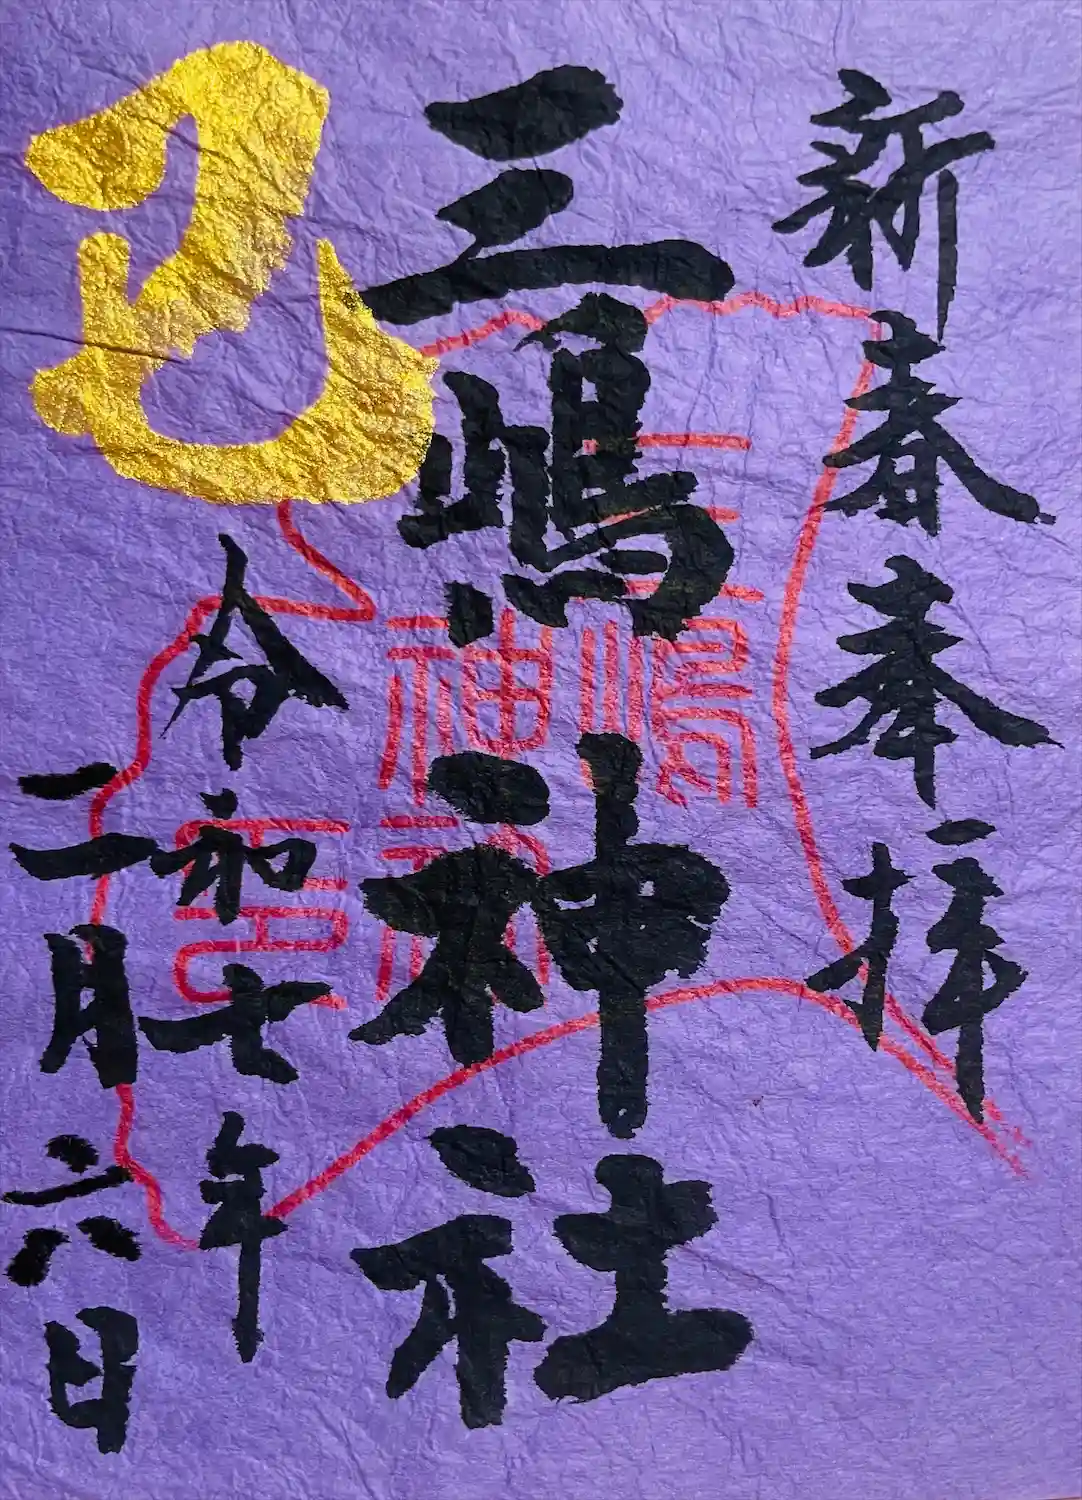 新春奉拝
三嶋神社
巳
令和七年
二月六日
三嶋
神社
印